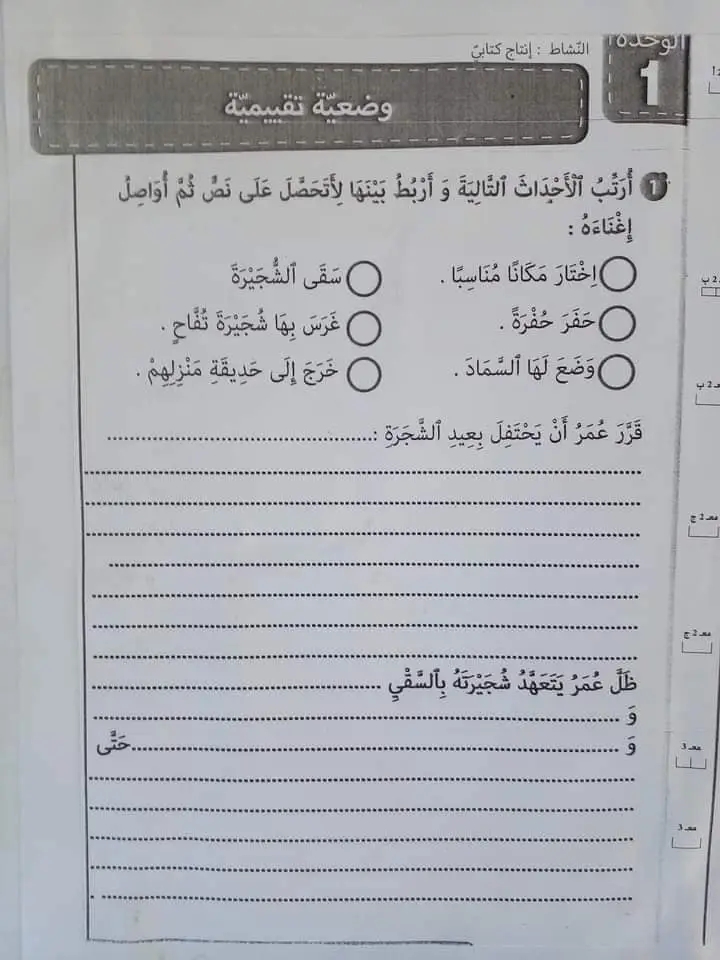 الوحدة
1
النّشاط : إنتاج كتابيّ
وضعيّة تقييميّة
1 أُرَتِّبُ ٱلْأَحْدَاثَ ٱلتَّالِيَةَ وَ أَرْبُطُ بَيْنَهَا لِأَتَحَصَّلَ عَلَى نَصٍّ ثُمَّ أُوَاصِلُ
إِغْنَاءَهُ :
اِخْتَارَ مَكَانًا مُنَاسِبًا . سَقَى ٱلشُّجَيْرَةَ
حَفَرَ حُفْرَةً . غَرَسَ بِهَا شُجَيْرَةَ تُفَّاحٍ .
وَضَعَ لَهَا ٱلسَّمَادَ . خَرَجَ إِلَى حَدِيقَةِ مَنْزِلِهِمْ .
قَرَّرَ عُمَرُ أَنْ يَحْتَفِلَ بِعِيدِ ٱلشَّجَرَةِ :
ظَلَّ عُمَرُ يَتَعَهَّدُ شُجَيْرَتَهُ بِٱلسَّقْيِ
وَ
وَ حَتَّى
معـ 2 ج
معـ 2 ج
معـ 3
معـ 3